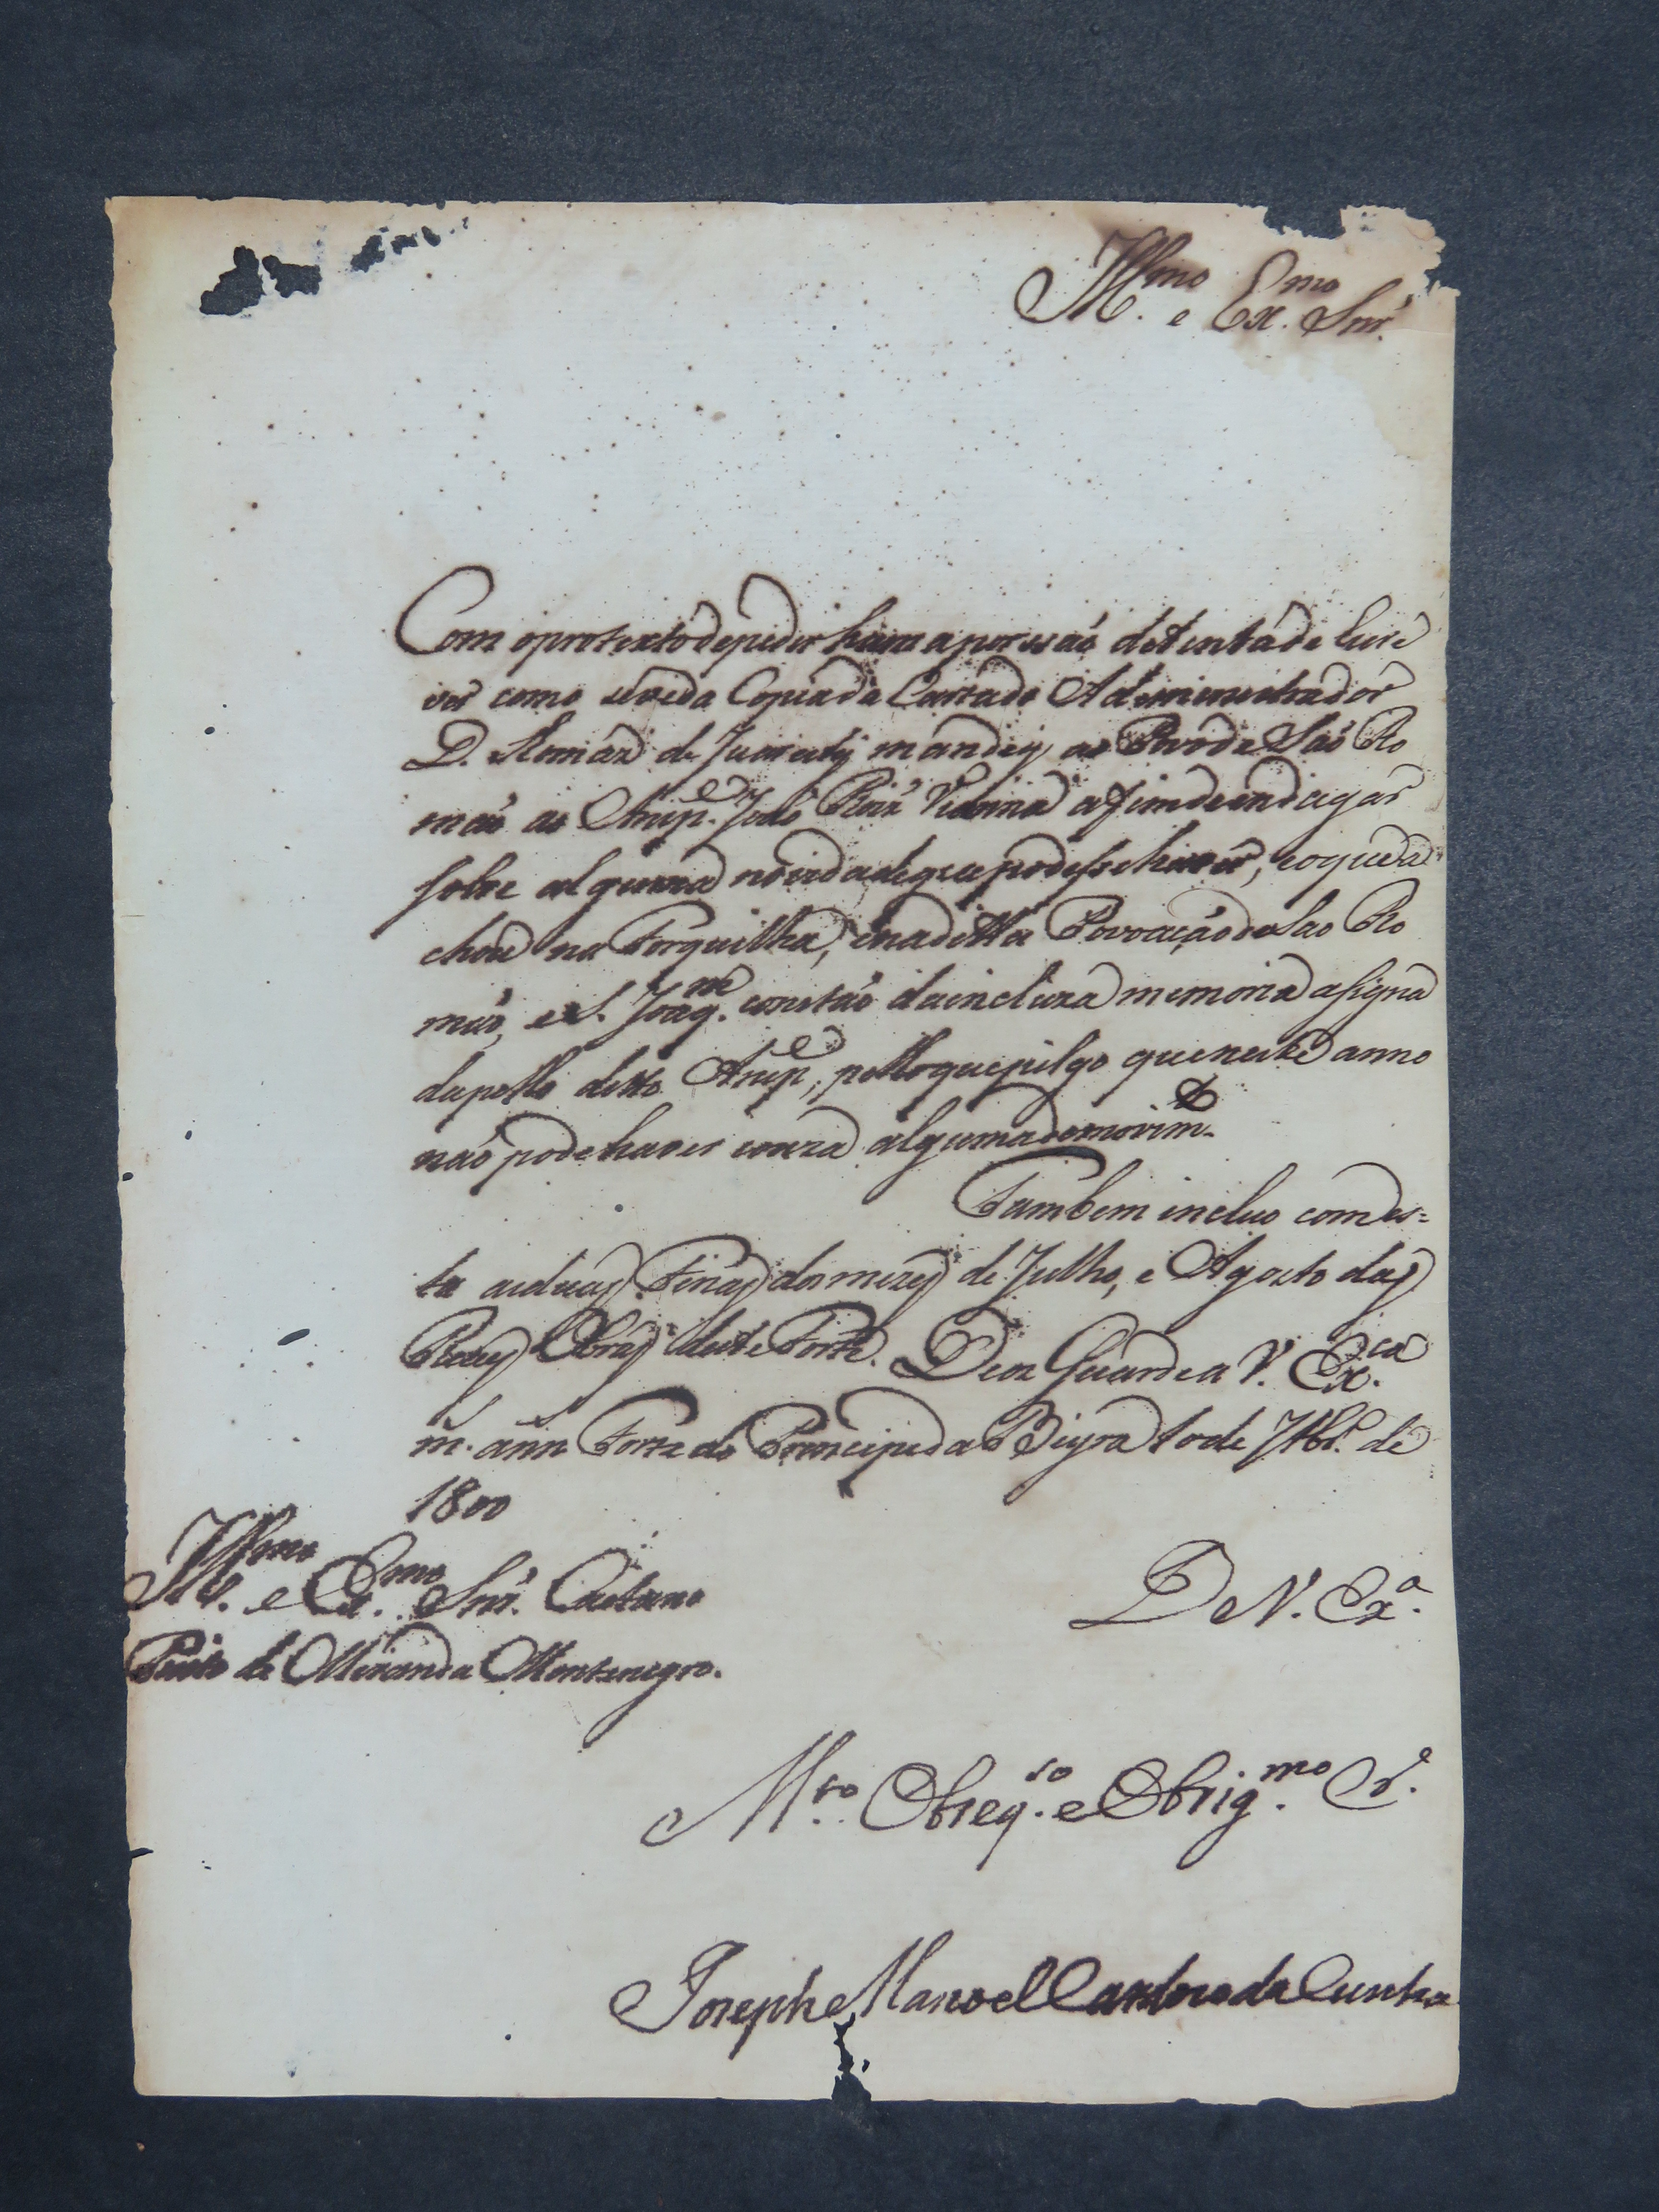 Ill.mo e Ex.mo Snr.
Com o pretexto de pedir huma porsaõ de tenta de Cure
ver como se ve da Copia da Carta do Administrador
D. Romaõ de mandey ao Povo de Saõ Ro
maõ ao Ansp.e Joaõ Roiz Vianna a fim de endagar
sobre alguma novidade que podesse haver, e o que da
chou na Forquilha, e na ditta Povoaçaõ de Sao Ro
maõ, e S. Joaq.m constaõ da incluza memoria asigna
da pello ditto Ansp.e, pello que julgo que neste anno
naõ pode haver couza alguma de movim.to
Tambem incluo com es=
ta as duas Ferias dos mezes de Julho, e Agosto das
Reaes Obras deste Forte. Deos Guarde a V. Ex.ca
m. ann Forte do Principe da Beyra 10 de 7br.o de
1800
Ill.mo e Ex.mo Snr. Caetano
Pinto de Miranda Montenegro.
De V. Ex.a
M.to Obseq.so e Obrig.mo Cr.e
Joseph Manoel Cardozo da Cunha